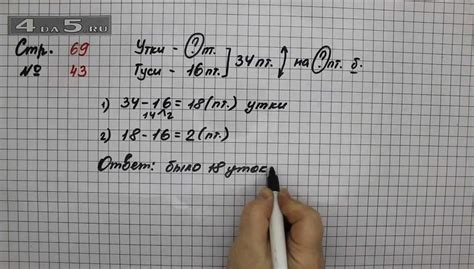 4DA5.RU
Стр. 69
№ 43
Утки - ? пт.
Гуси - 16 пт. ] 34 пт. на ? пт. б.
1) 34 - 16 = 18 (пт.) утки
14 2
2) 18 - 16 = 2 (пт.)
Ответ: было 18 уток